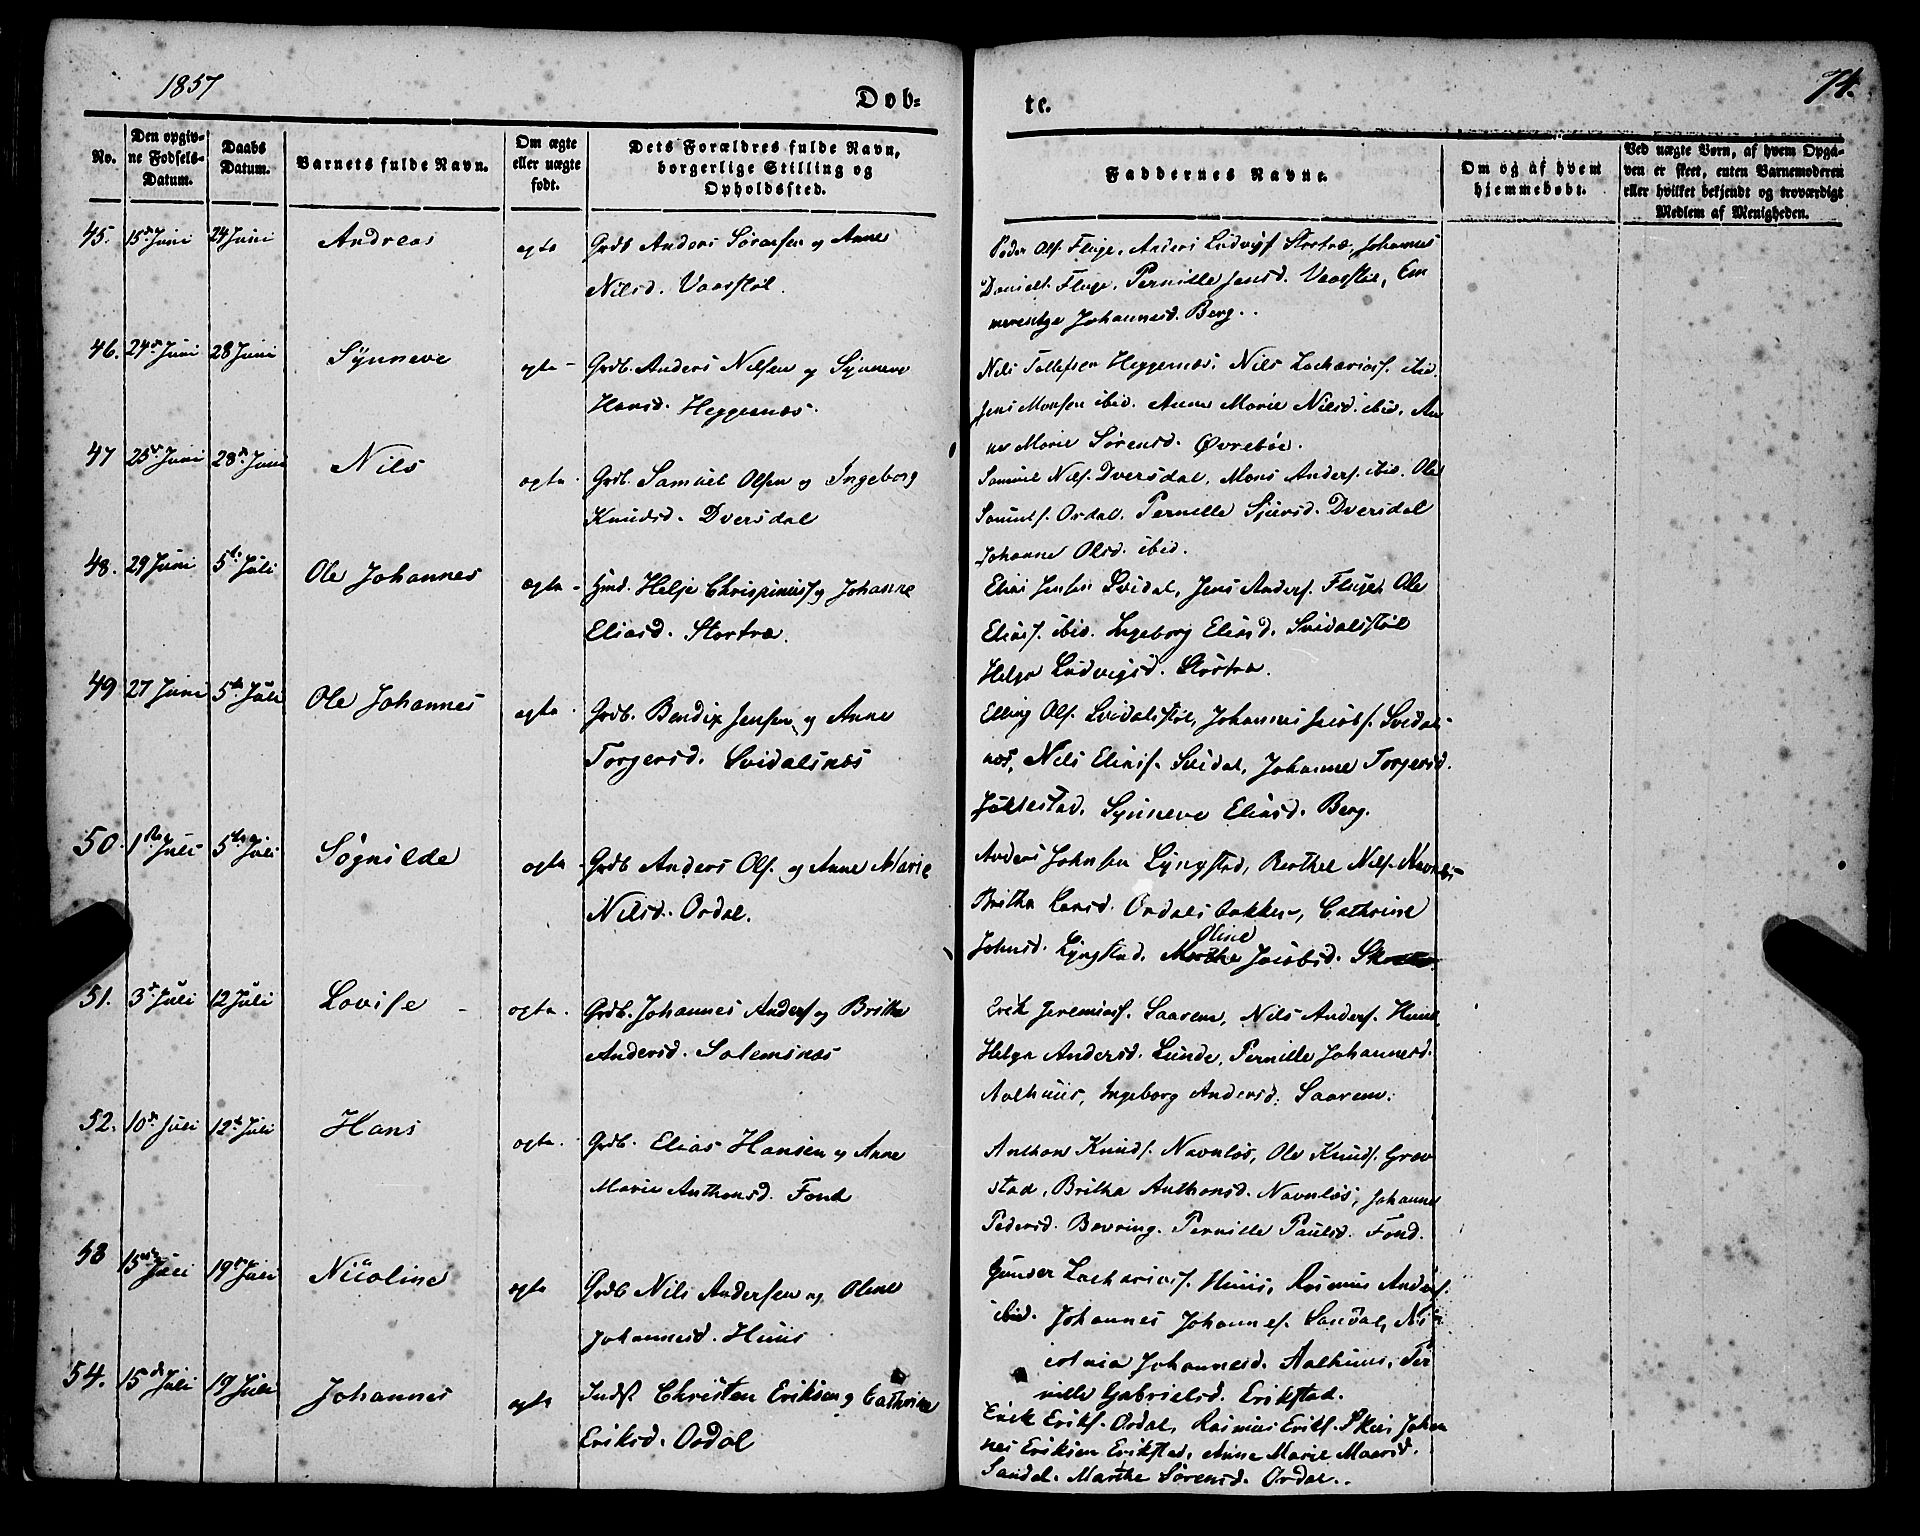 1857
Dob=
te.
74.
No.
Den opgiv-
ne Fødsels-
Datum.
Daabs
Datum.
Barnets fulde Navn.
Om ægte
eller uægte
født.
Dets Forældres fulde Navn,
borgerlige Stilling og
Opholdssted.
Faddernes Navne.
Om og af hvem
hjemmedøbt.
Ved uægte Børn, af hvem Opga-
ven er skeet, enten Barnemoderen
eller hvilket bekjendt og troværdigt
Medlem af Menigheden.
45. 15de Juni 24 Juni Andreas ægte Grdb Anders Sørensen og Anne
Nilsd. Vaasstøl.
Peder Ols. Fluge, Anders Ludvigs. Stortræ, Johannes
Daniels. Fluge, Pernille Jensd. Vaasstøl, Em
merentze Johannesd. Berg.
46. 24de Juni 28 Juni Synneve ægte - Grdb. Anders Nilsen og Synneve
Hansd. Heggenæs.
Nils Tollefsen Heggenæs, Nils Zacharias. ibid.
Jens Monsen ibid. Anne Marie Nilsd. ibid, An
ne Marie Sørensd. Øvrebøe.
47 25de Juni 28de Juni Nils ægte. Grdb. Samuel Olsen og Ingeborg
Knudsd. Dvergsdal
Samuel Nils. Dvergsdal, Mons Anders. ibid. Ole
Samuels. Ordal. Pernille Sjursd. Dvergsdal
Johanne Olsd. ibid.
48. 29 Juni 5te Juli Ole Johannes ægte - Hmd. Helje Chrispinus. og Johanne
Eliasd. Stortræ.
Elias Jensen Svidal, Jens Anders. Fluge, Ole
Elias. ibid. Ingeborg Eliasd. Svidalstøl
Helga Ludvigsd. Stortræ.
49 27 Juni 5te Juli Ole Johannes ægte. Grdb. Bendix Jensen og Anne
Torgersd. Svidalsnæs
Elling Ols. Svidalstøl, Johannes Jacobs. Svidals-
næs, Nils Elias. Svidal, Johanne Torgersd.
Jølhestad. Synneve Eliasd. Berg.
50. 1ste Juli 5te Juli Søgnilde ægte - Grdb Anders Ols. og Anne Marie
Nilsd. Ordal.
Anders Johnsen Lyngstad, Berthel Nils. Navnløs
Britha Larsd. Ordalsbakken, Cathrine
Oline
Johnsd. Lyngstad. Marthe Jacobsd.
51. 3de Juli 12 Juli Lovise - ægte. Grdb. Johannes Anders. og Britha
Andersd. Solemsnæs
Erik Jeremias. Saarem, Nils Anders. Huus,
Helga Andersd. Lunde, Pernille Johannesd.
Aalhuus, Ingeborg Andersd. Saarem.
52. 10de Juli 12te Juli Hans ægte. Grdb. Elias Hansen og Anne
Marie Anthonsd. Fond
Anthon Knuds. Navnløs, Ole Knuds. Grov
stad, Britha Anthonsd. Navnløs, Johanne
Pedersd. Bovring. Pernille Paulsd. Fond.
53 15de Juli 19de Juli Nicoline ægte Grdb Nils Andersen og Oline
Johannesd. Huus
Gunder Zacharias. Huus, Rasmus Anders.
ibid. Johannes Johannes. Sandal, Ni
colaia Johannesd. Aalhuus, Per
nille Gabrielsd. Erikstad.
54. 15de Juli 19 Juli Johannes ægte Indst Christen Eriksen og Cathrine
Eriksd. Ordal
Erik Eriks. Ordal, Rasmus Eriks. Skei, Johan
nes Eriksen Erikstad, Anne Marie
Sandal. Marthe Sørensd. Ordal.